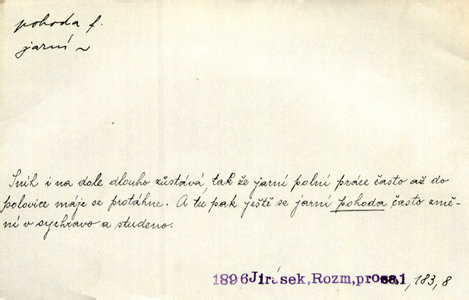 pohoda f.
jarní ~
Sníh i na dole dlouho zůstává, tak že jarní polní práce často až do
polovice máje se protáhne. A tu pak ještě se jarní pohoda často změ-
ní v sychravo a studeno.
1896 Jirásek, Rozm, prosa, 1, 183, 8